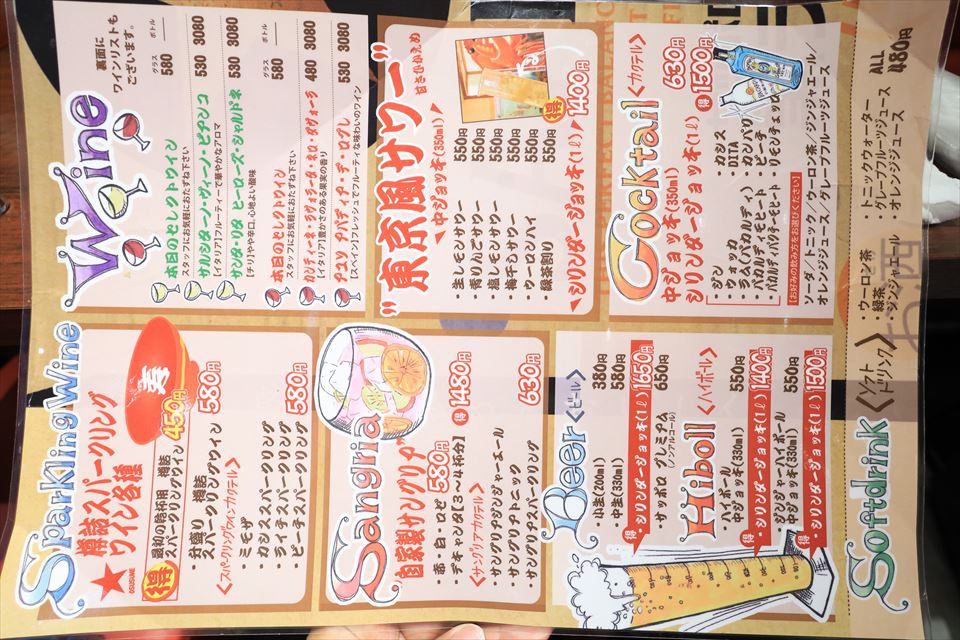 Sparkling Wine
樽詰スパークリング
ワイン各種
OSUSUME
得
最初の乾杯用 樽詰
スパークリングワイン 450円
寿
・升盛り 樽詰
スパークリングワイン 580円
<スパークリングワインカクテル>
・ミモザ
・カシススパークリング
・ライチスパークリング
・ピーチスパークリング
580円
Wine
裏面に
ワインリストも
ございます。
グラス ボトル
本日のセレクトワイン 580 ―
スタッフにお気軽におたずね下さい
サルシターノ・ヴィーノ・ビアンコ 530 3080
[イタリア]フルーティーで華やかなアロマ
サンタ・リタ ヒーローズ・シャルドネ 530 3080
[チリ]やや辛口、心地よい酸味
グラス ボトル
本日のセレクトワイン 580 ―
スタッフにお気軽におたずね下さい
480 3080
[イタリア]豊かさのある果実の香り
530 3080
[スペイン]フレッシュでフルーティな味わいのワイン
Sangria
自家製サングリア
・赤・白・ロゼ 580円
・デキャンタ【3〜4杯分】 得 1480円
<サングリアカクテル>
・サングリアジンジャーエール
・サングリアトニック
・サングリアスパークリング
630円
"東京風サワー"
甘さひかえめ
中ジョッキ(350ml)
・生レモンサワー 550円
・青りんごサワー 550円
・塩レモンサワー 550円
・梅干しサワー 550円
・ウーロンハイ 550円
・緑茶割り 550円
シリンダージョッキ(1ℓ) 得 1400円
Beer <ビール>
・小生(200ml) 380円
・中生(330ml) 580円
得 ・シリンダージョッキ(1ℓ) 1650円
・サッポロ プレミアム
(ノンアルコール) 650円
Hiboll <ハイボール>
・ハイボール
中ジョッキ(330ml) 550円
得 ・シリンダージョッキ(1ℓ) 1400円
・ジンジャーハイボール
中ジョッキ(330ml) 550円
得 ・シリンダージョッキ(1ℓ) 1500円
Cocktail <カクテル>
中ジョッキ(330ml) 630円
シリンダージョッキ(1ℓ) 得 1500円
・ジン
・ウォッカ
・ラム(バカルディ)
・バカルディモヒート
・バカルディパクチーモヒート
・カシス
・DITA
・カンパリ
・ピーチ
・リモンチェッロ
【お好みの飲み方をお選びください】
ソーダ/トニックス/ウーロン茶/ジンジャエール/
オレンジジュース/グレープフルーツジュース
Softdrink <ソフトドリンク>
・ウーロン茶
・緑茶
・ジンジャエール
・トニックウォーター
・グレープフルーツジュース
・オレンジジュース
ALL
480円